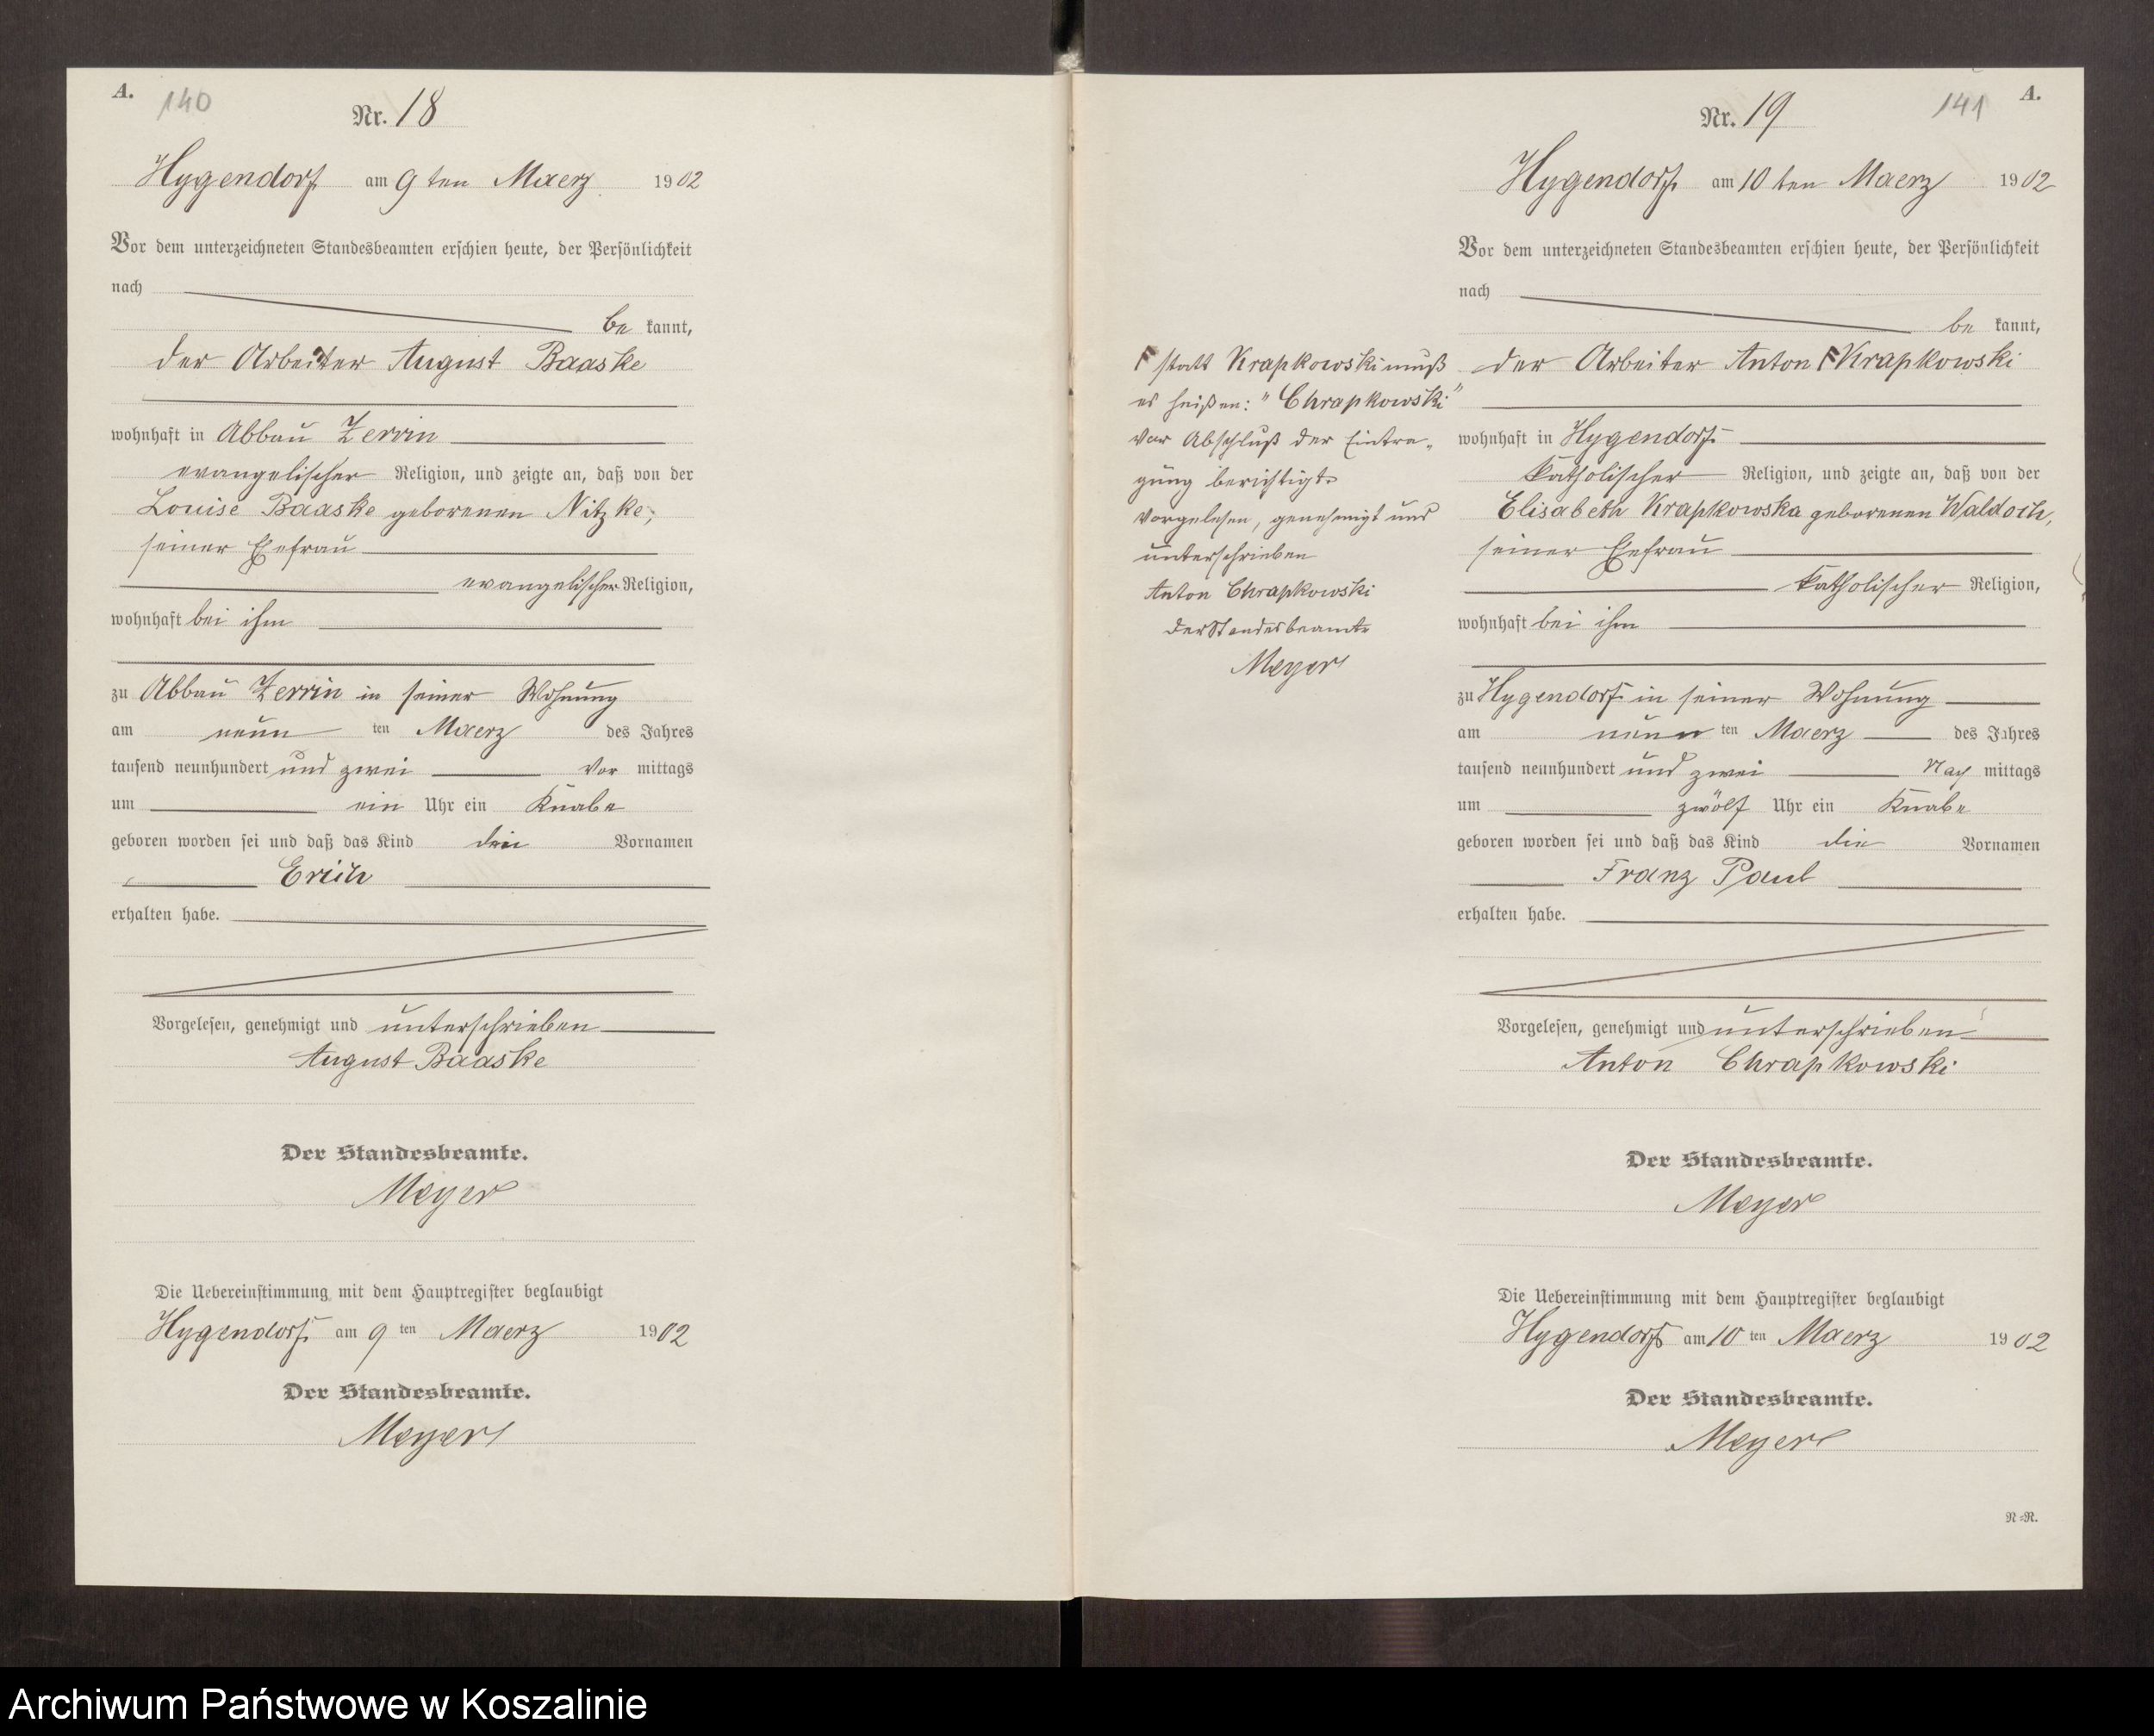 A.
140
Nr. 18
Hygendorf am 9 ten Maerz 1902
Vor dem unterzeichneten Standesbeamten erschien heute, der Persönlichkeit
nach
be kannt,
der Arbeiter August Baaske
wohnhaft in Abbau Zerrin
evangelischer Religion, und zeigte an, daß von der
Louise Baaske geborenen Nitzke,
seiner Ehefrau
evangelischer Religion,
wohnhaft bei ihm
zu Abbau Zerrin in seiner Wohnung
am neun ten Maerz des Jahres
tausend neunhundert und zwei Vor mittags
um ein Uhr ein Knabe
geboren worden sei und daß das Kind den Vornamen
Erich
erhalten habe.
Vorgelesen, genehmigt und unterschrieben
August Baaske
Der Standesbeamte.
Meyer
Die Uebereinstimmung mit dem Hauptregister beglaubigt
Hygendorf am 9 ten Maerz 1902
Der Standesbeamte.
Meyer
141
A.
Nr. 19
Hygendorf am 10 ten Maerz 1902
Vor dem unterzeichneten Standesbeamten erschien heute, der Persönlichkeit
nach
be kannt,
der Arbeiter Anton Krapkowski
wohnhaft in Hygendorf
katholischer Religion, und zeigte an, daß von der
Elisabeth Krapkowska geborenen Waldoch,
seiner Ehefrau
katholischer Religion,
wohnhaft bei ihm
zu Hygendorf in seiner Wohnung
am neun ten Maerz des Jahres
tausend neunhundert und zwei Nach mittags
um zwölf Uhr ein Knabe
geboren worden sei und daß das Kind die Vornamen
Franz Paul
erhalten habe.
Vorgelesen, genehmigt und unterschrieben
Anton Chrapkowski
Der Standesbeamte.
Meyer
Die Uebereinstimmung mit dem Hauptregister beglaubigt
Hygendorf am 10 ten Maerz 1902
Der Standesbeamte.
Meyer
N=R.
statt Krapkowski muß
es heißen: "Chrapkowski"
vor Abschluß der Eintra-
gung berichtigt
Vorgelesen, genehmigt und
unterschrieben
Anton Chrapkowski
der Standesbeamte
Meyer
Archiwum Państwowe w Koszalinie